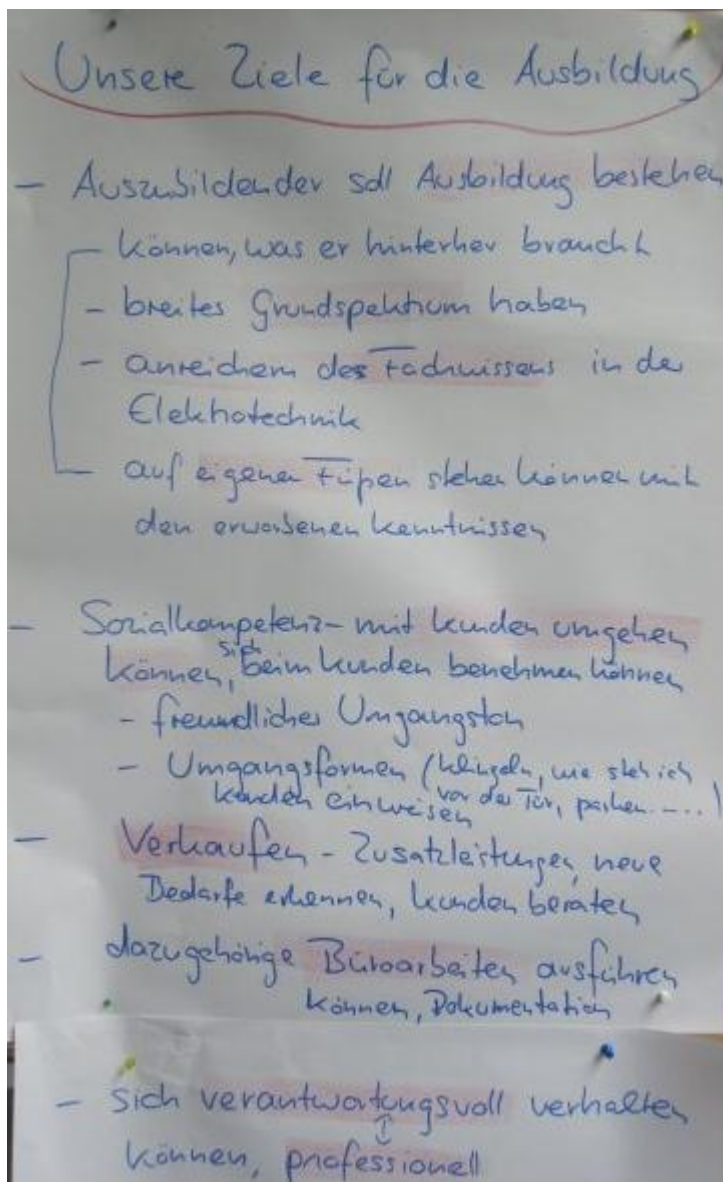 Unsere Ziele für die Ausbildung
- Auszubildender soll Ausbildung bestehen
- können, was er hinterher braucht
- breites Grundspektrum haben
- anreichern des Fachwissens in der
Elektrotechnik
- auf eigenen Füßen stehen können mit
den erworbenen Kenntnissen
- Sozialkompetenz - mit Kunden umgehen
können, sich beim Kunden benehmen können
- freundlicher Umgangston
- Umgangsformen (klingeln, wie steh ich
vor der Tür, parken.....)
Kunden einweisen
- Verkaufen - Zusatzleistungen, neue
Bedarfe erkennen, Kunden beraten
- dazugehörige Büroarbeiten ausführen
können, Dokumentation
- sich verantwortungsvoll verhalten
können, professionell